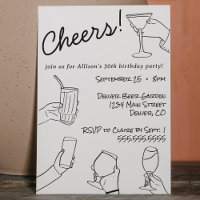 Cheers!
join us for Allison's 30th birthday party!
September 25 • 8pm
Denver Beer Garden
1234 Main Street
Denver, CO
RSVP to Claire by Sept. 1
555.555.5555